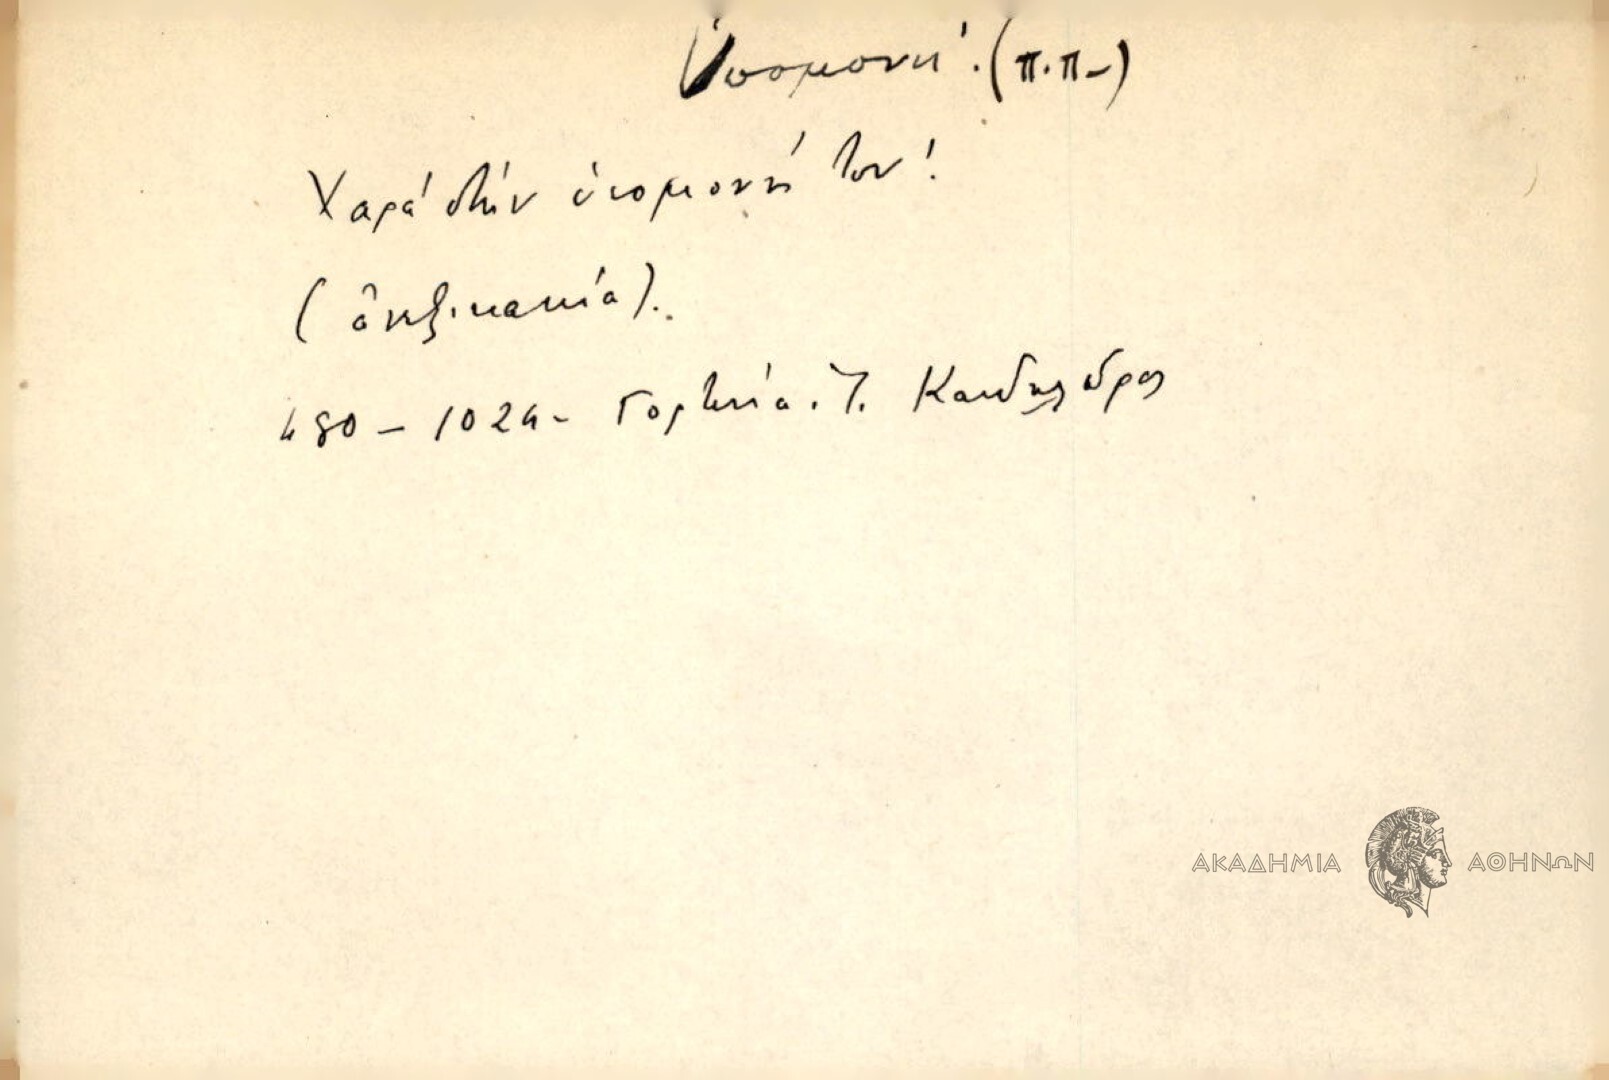 Ὑπομονή. (π.π-)
Χαρά στήν ὑπομονή του!
(ἀνεξικακία).
480 - 1024 - Γορτυνία. Τ. Κανδηλῶρος
ΑΚΑΔΗΜΙΑ ΑΘΗΝΩΝ